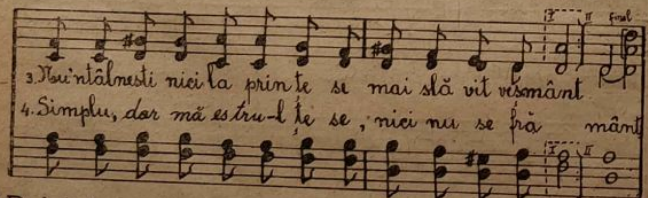 I II final
3. Nu'ntâlnești nici la prințe se mai slă vit veșmânt
4. Simplu, dar mă es tru-l țe se, nici nu se fră mânt
I II